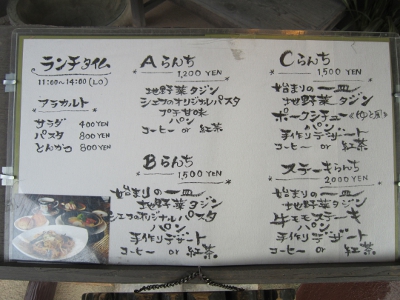 ランチタイム
11:00~14:00(LO)
アラカルト
サラダ 400YEN
パスタ 800YEN
とんかつ 800YEN
Aらんち
1,200 YEN
地野菜タジン
シェフのオリジナルパスタ
プチ甘味
パン
コーヒー or 紅茶
Bらんち
1,500 YEN
始まりの一皿
地野菜タジン
シェフのオリジナルパスタ
パン
手作りデザート
コーヒー or 紅茶
Cらんち
1,500 YEN
始まりの一皿
地野菜タジン
ポークシチュー
パン
手作りデザート
コーヒー or 紅茶
ステーキらんち
2,000 YEN
始まりの一皿
地野菜タジン
牛モモステーキ
パン
手作りデザート
コーヒー or 紅茶